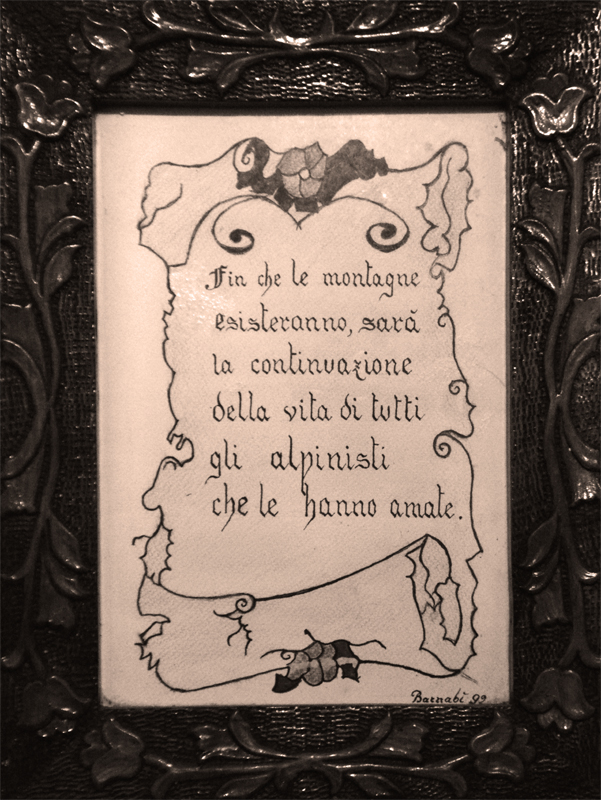 Fin che le montagne
esisteranno, sará
la continuazione
della vita di tutti
gli alpinisti
che le hanno amate.
Barnabi 99